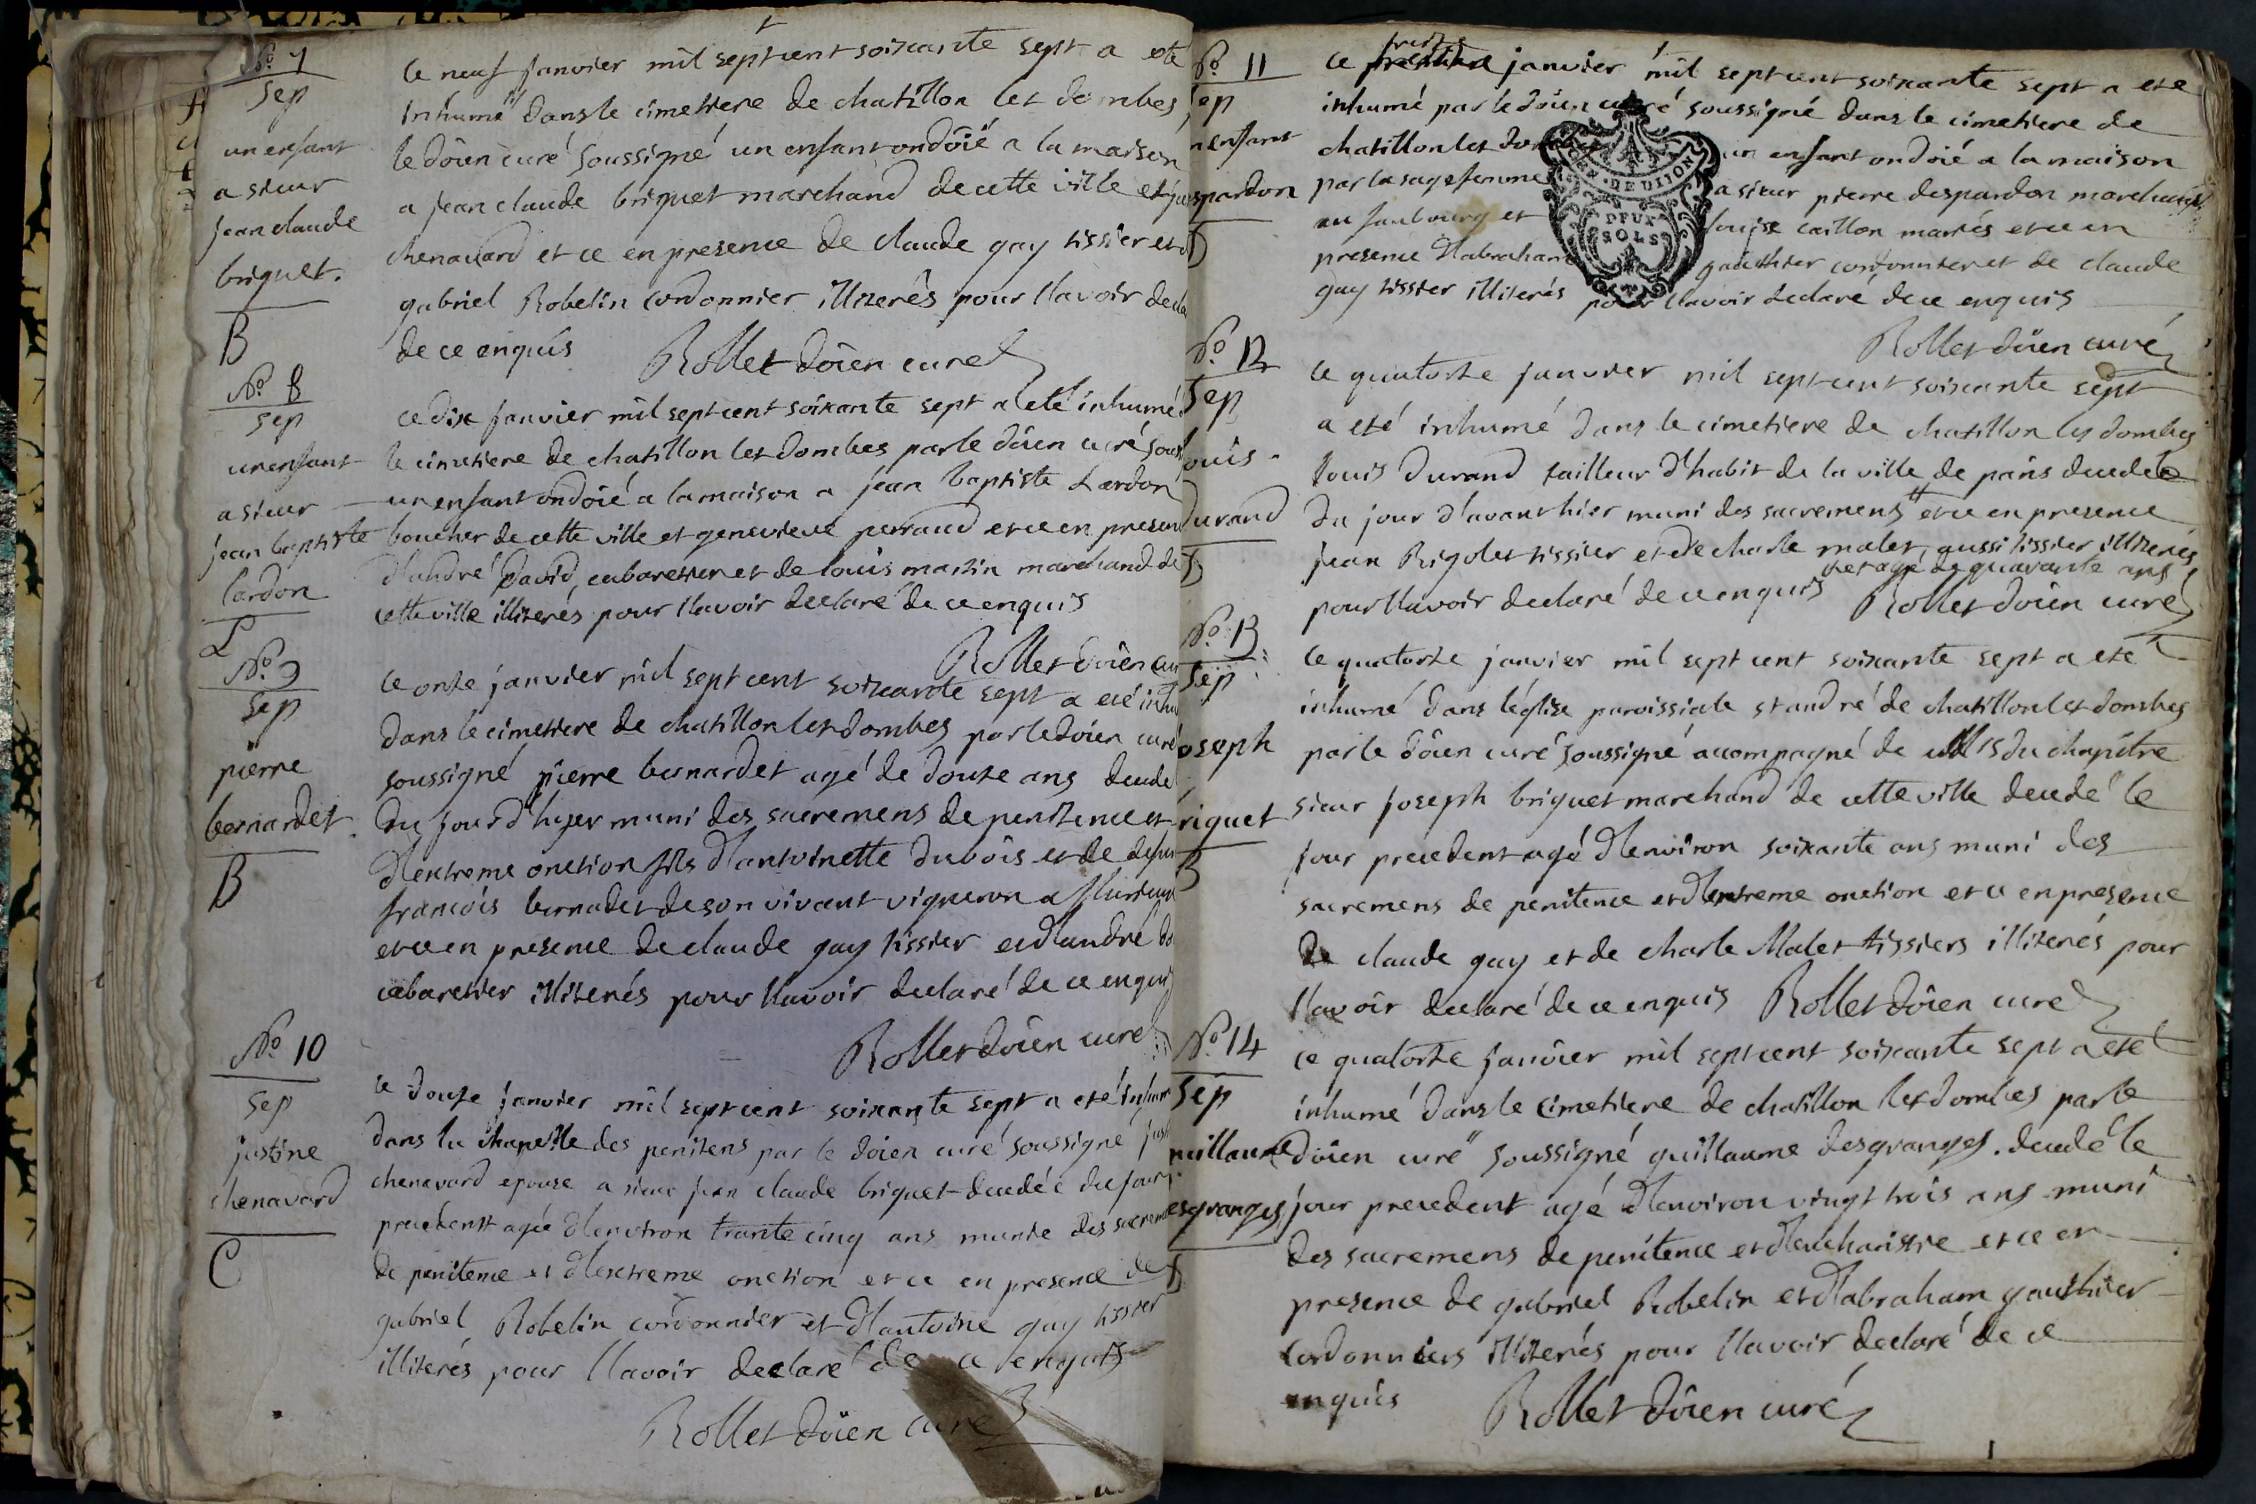 No 7
Sep
un enfant
a sieur
jean claude
briquet.
B
le neuf janvier mil sept cent soixante sept a eté
inhumé dans le cimetiere de chatillon les dombes
le doïen curé soussigné un enfant ondoïé a la maison
a jean claude briquet marchand de cette ville et jus
chenavard et ce en presence de claude gay tissier et d
gabriel Robelin cordonnier illiterés pour l'avoir decla
de ce enquis Rollet doïen curé
No 8
Sep
un enfant
a sieur
jean baptiste
lardon
L
ce dix janvier mil sept cent soixante sept a eté inhumé
le cimetiere de chatillon les dombes par le doïen curé sous
un enfant ondoïé a la maison a jean baptiste Lardon
boucher de cette ville et genevieve perraud et ce en presen
d'andré David, cabaretier et de louis mazin marchand de
cette ville illiterés pour l'avoir declaré de ce enquis
Rollet doïen cu
No 9
Sep
pierre
bernardet
B
le onze janvier mil sept cent soixante sept a eté inhu
dans le cimetiere de chatillon les dombes par le doïen curé
soussigné pierre bernardet agé de douze ans decedé
du jour d'hyer muni des sacremens de penitence et
d'extreme onction fils d'antoinette dubois et de defun
francois bernadet de son vivant vigneron a fleurieux
et ce en presence de claude gay tissier et d'andré da
cabaretier illiterés pour l'avoir declaré de ce enquis
Rollet doïen curé
No 10
Sep
justine
chenavard
C
le douze janvier mil sept cent soixante sept a eté inhum
dans la chapelle des penitens par le doïen curé soussigné just
chenavard epouse a sieur jean claude briquet decedée du jour
precedent agée d'environ trante cinq ans munie des sacreme
de penitence et d'extreme onction et ce en presence de
gabriel Robelin cordonnier et d'antoine gay tissier
illiterés pour l'avoir declaré de ce enquis
Rollet doïen curé
No 11
Sep
n enfant
spardon
D
ce treize janvier mil sept cent soixante sept a eté
inhumé par le doïen curé soussigné dans le cimetiere de
chatillon les dombes un enfant ondoié a la maison
par la sage femme a sieur pierre despardon marchand
au faubourg et louise caillon mariés et ce en
presence d'abraham gauthier cordonnier et de claude
gay tissier illiterés pour l'avoir declaré de ce enquis
Rollet doïen curé
GEN. DE DIJON
DEUX
SOLS
No 12
Sep
louis
Durand
D
le quatorze janvier mil sept cent soixante sept
a eté inhumé dans le cimetiere de chatillon les dombes
louis Durand tailleur d'habit de la ville de paris decedé
du jour d'avant hier muni des sacremens et ce en presence
jean Rigolet tissier et de charle malet, aussi tissier illiterés
et agé de quarante ans
pour l'avoir declaré de ce enquis Rollet doïen curé
No 13
Sep
oseph
riquet
B
le quatorze janvier mil sept cent soixante sept a eté
inhumé dans l'église paroissiale st andré de chatillon les dombes
par le doïen curé soussigné accompagné de Mrs du chapitre
sieur joseph briquet marchand de cette ville decedé le
jour precedent agé d'environ soixante ans muni des
sacremens de penitence et d'extreme onction et ce en presence
de claude gay et de charle Malet tissiers illiterés pour
l'avoir declaré de ce enquis Rollet doïen curé
No 14
Sep
uillaume
esgranges
D
ce quatorze janvier mil sept cent soixante sept a eté
inhumé dans le cimetiere de chatillon les dombes par le
doïen curé soussigné guillaume desgranges. decedé le
jour precedent agé d'environ vingt trois ans muni
des sacremens de penitence et d'eucharistie et ce en
presence de gabriel Robelin et d'abraham gauthier
cordonniers illiterés pour l'avoir declaré de ce
enquis Rollet doïen curé